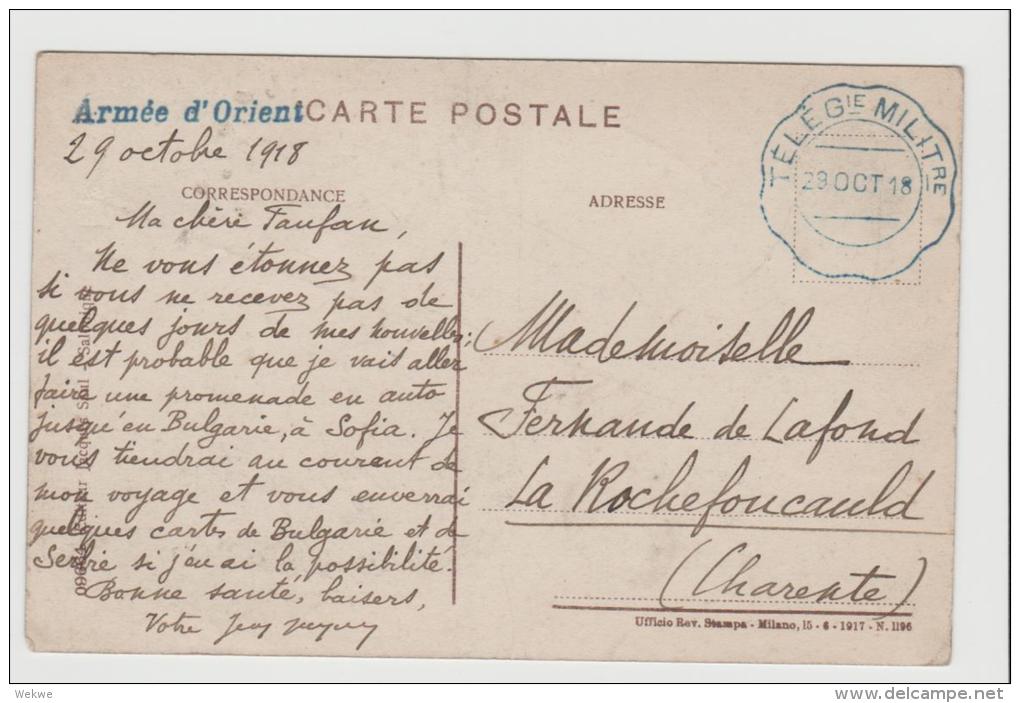 Armée d'Orient CARTE POSTALE
TÉLÉGIE MILITRE
29 OCT 18
29 octobre 1918
CORRESPONDANCE
ADRESSE
Ma chère Fanfan,
Ne vous étonnez pas
si vous ne recevez pas de
quelques jours de mes nouvelles;
il est probable que je vais aller
faire une promenade en auto
jusqu'en Bulgarie, à Sofia. Je
vous tiendrai au courant de
mon voyage et vous enverrai
quelques cartes de Bulgarie et de
Serbie si j'en ai la possibilité.
Bonne santé, baisers,
Votre
Mademoiselle
Fernande de Lafond
La Rochefoucauld
(Charente)
Ufficio Rev. Stampa - Milano, 15 - 6 - 1917 - N. 1196
Jacques Saul - Salonique
Wekwe
delcampe.net